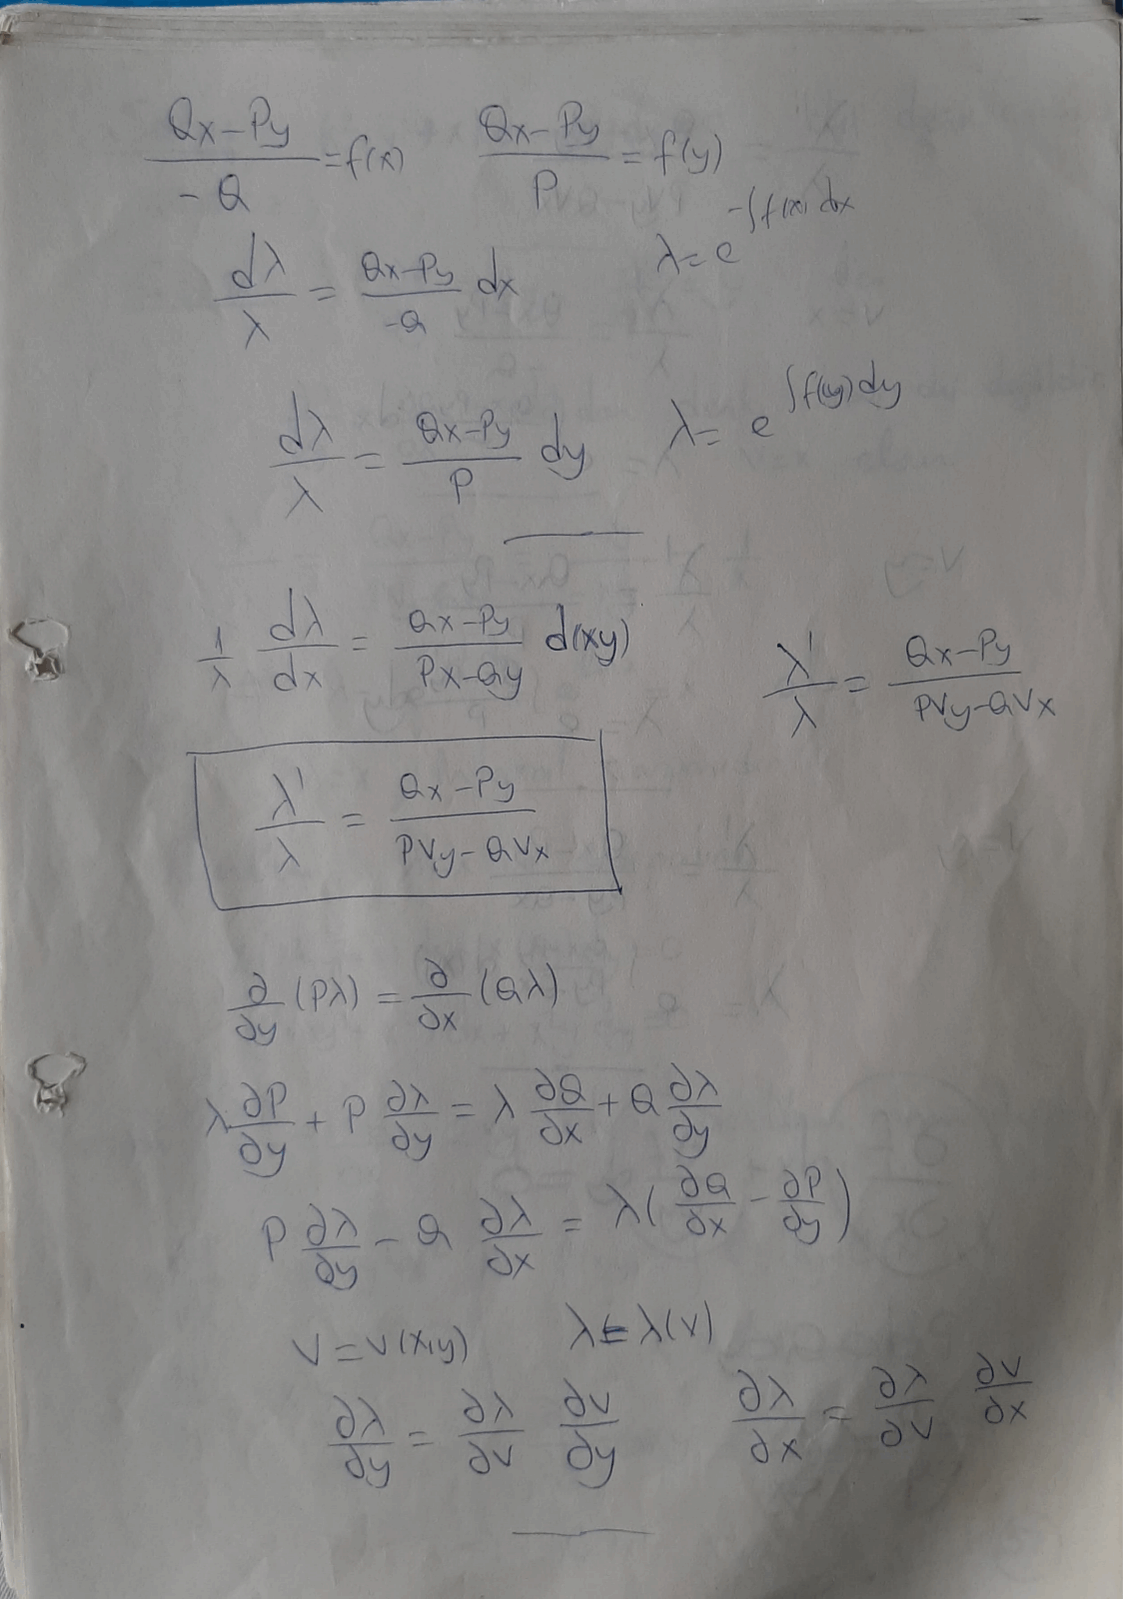 (Qx-Py)/(-Q) = f(x)   (Qx-Py)/P = f(y)
dλ/λ = (Qx-Py)/(-Q) dx   λ = e^(-∫f(x) dx)
dλ/λ = (Qx-Py)/P dy   λ = e^(∫f(y) dy)
1/λ dλ/dx = (Qx-Py)/(Px-Qy) d(xy)   λ'/λ = (Qx-Py)/(PVy-QVx)
λ'/λ = (Qx-Py)/(PVy-QVx)
∂/∂y (Pλ) = ∂/∂x (Qλ)
λ ∂P/∂y + P ∂λ/∂y = λ ∂Q/∂x + Q ∂λ/∂y
P ∂λ/∂y - Q ∂λ/∂x = λ(∂Q/∂x - ∂P/∂y)
v = v(x,y)   λ = λ(v)
∂λ/∂y = ∂λ/∂v ∂v/∂y   ∂λ/∂x = ∂λ/∂v ∂v/∂x